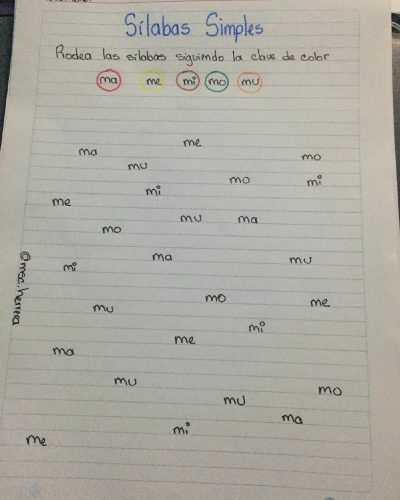 Sílabas Simples
Rodea las sílabas siguiendo la clave de color
ma me mi mo mu
me
ma mo
mu
mo mi
mi
me
mu ma
mo
ma mu
mi
mo me
mu
mi
me
ma
mu
mo
mu
ma
mi
me
@msc.herrera